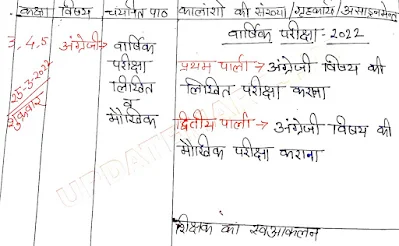 कक्षा विषय चयनित पाठ कालांशो की संख्या/गृहकार्य/असाइनमेन्ट
वार्षिक परीक्षा-2022
3,4,5 अंग्रेजी→ वार्षिक परीक्षा लिखित व मौखिक
25-3-2022
शुक्रवार
प्रथम पाली→ अंग्रेजी विषय की
लिखित परीक्षा करना
द्वितीय पाली→ अंग्रेजी विषय की
मौखिक परीक्षा कराना
शिक्षक का स्वआकलन